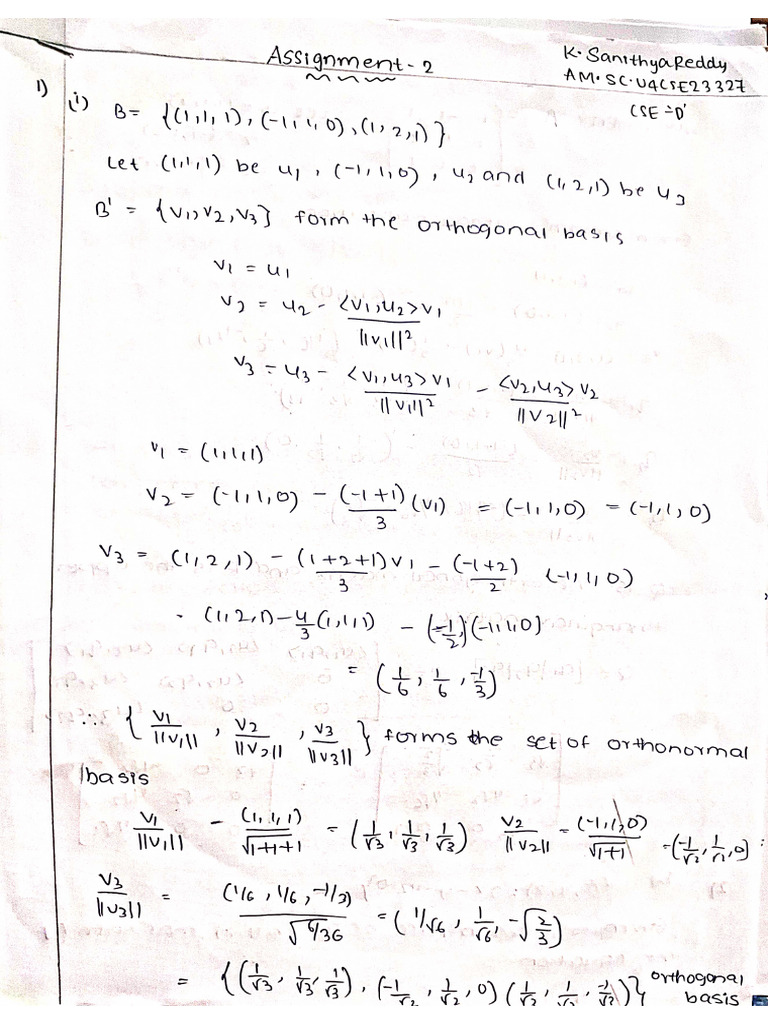 Assignment - 2
K. Sanithya Reddy
AM.SC.U4CSE23327
CSE - 'D'
1) (i) B = {(1,1,1), (-1,1,0), (1,2,1)}
Let (1,1,1) be u₁, (-1,1,0), u₂ and (1,2,1) be u₃
B' = {v₁, v₂, v₃} form the orthogonal basis
v₁ = u₁
v₂ = u₂ - <v₁,u₂>v₁ / ||v₁||²
v₃ = u₃ - <v₁,u₃>v₁ / ||v₁||² - <v₂,u₃>v₂ / ||v₂||²
v₁ = (1,1,1)
v₂ = (-1,1,0) - (-1+1)/3 (v₁) = (-1,1,0) = (-1,1,0)
v₃ = (1,2,1) - (1+2+1)v₁/3 - (-1+2)/2 (-1,1,0)
- (1,2,1) - 4/3 (1,1,1) - (-1/2)(-1,1,0)
= (1/6, 1/6, -1/3)
∴ {v₁/||v₁||, v₂/||v₂||, v₃/||v₃||} forms the set of orthonormal
basis
v₁/||v₁|| - (1,1,1)/√1+1+1 = (1/√3, 1/√3, 1/√3) v₂/||v₂|| = (-1,1,0)/√1+1 = (-1/√2, 1/√2, 0)
v₃/||v₃|| = (1/6, 1/6, -1/3)/√6/36 = (1/√6, 1/√6, -√2/3)
= {(1/√3, 1/√3, 1/√3), (-1/√2, 1/√2, 0) orthogonal
basis